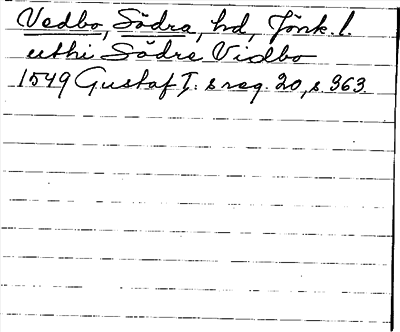 Vedbo, Södra, hd, Jönk. l.
uthi Södre Vidbo
1549 Gustaf I:s reg. 20, s. 363.